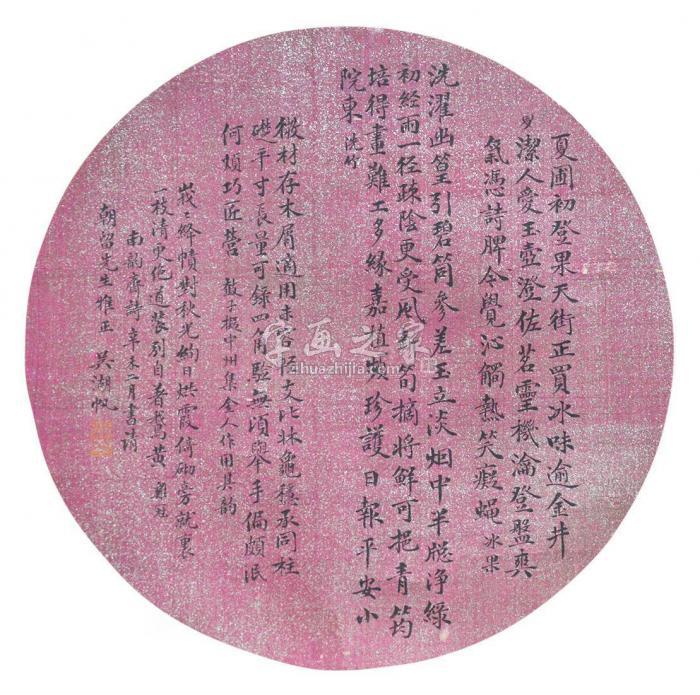 夏圃初登果天街正買冰味逾金井
潔人愛玉壺澄佐茗靈機瀹登盤爽
氣憑詩脾令覺沁觴熱笑癡蠅 冰果
洗濯幽篁引碧筒參差玉立淡烟中半牕淨綠
初經雨一徑疎陰更受風新筍摘將鮮可挹青筠
培得畫難工多緣嘉植頻珍護日報平安小
院東 洗竹
微材存木屑適用未容 支比牀龜穩承同柱
礎平寸長量可錄四角 無傾舉手偏頗泯
何煩巧匠營 中州集金人作用其韵
峩〻絳幘對秋光絢日烘霞倚砌旁就裏
一枝清更絕道裝別自着鵞黄 雞冠
南韵齋詩辛未二月書請
朝留先生雅正 吳湖帆
字画之家
zihuazhijia.com